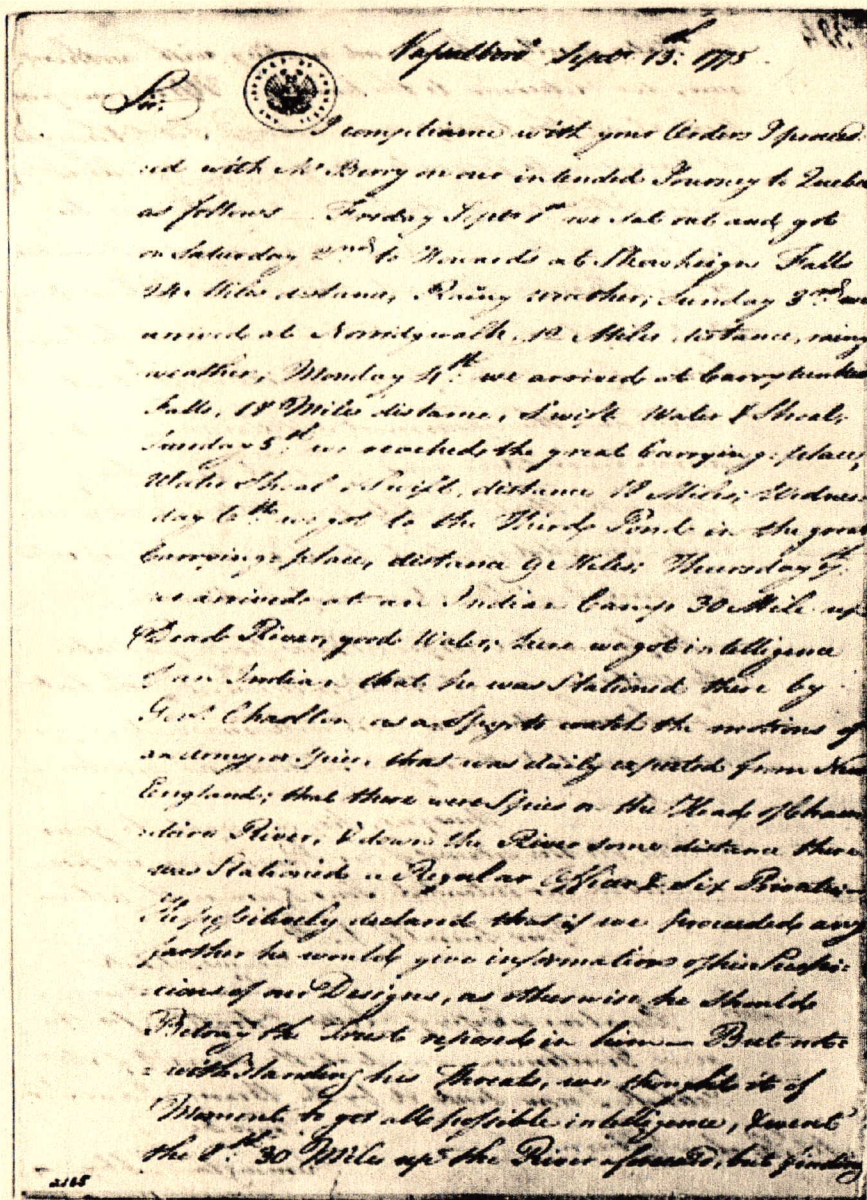 Vassalboro Septr 13th 1775
Sir.
I compliance with your Orders I proceed
:ed with Mr Berry on our intended Journey to Quebec
as follows Friday Septr 1st we set out and got
on Saturday 2nd to Howards at Skowheigun Falls
Miles distance, Rainy weather, Sunday 3rd we
arrived at Norridgwalk, 12 Miles distance, rainy
weather, Monday 4th we arrived at Carrytunkus
Falls, 18 Miles distance, Swift Water & Shoal,
5th we reached the great Carrying-place,
Water Shoal & Swift, distance 18 Miles, Wednes
day 6th we got to the Third Pond in the great
Carrying-place, distance 9 Miles; Thursday 7th
we arrived at an Indian Camp 30 Mile up
Dead River, good Water, here we got intelligence
of an Indian that he was Stationed there by
Govr Charlton as a Spy to watch the motions of
an Army, or Spies, that was daily expected from New
England; that there were Spies on the Head of Chau
diere River, & down the River some distance there
was Stationed a Regular Officer & Six Privates
He possitively declared that if we proceeded any
farther he would give information of his Suspi:
:cions of our Designs, as otherwise he should
Betray the Trust reposed in him— But not:
:withstanding his Threats, we thought it of
Moment to get all possible intelligence, & went
the 8th 30 Miles up the River, but finding
2165